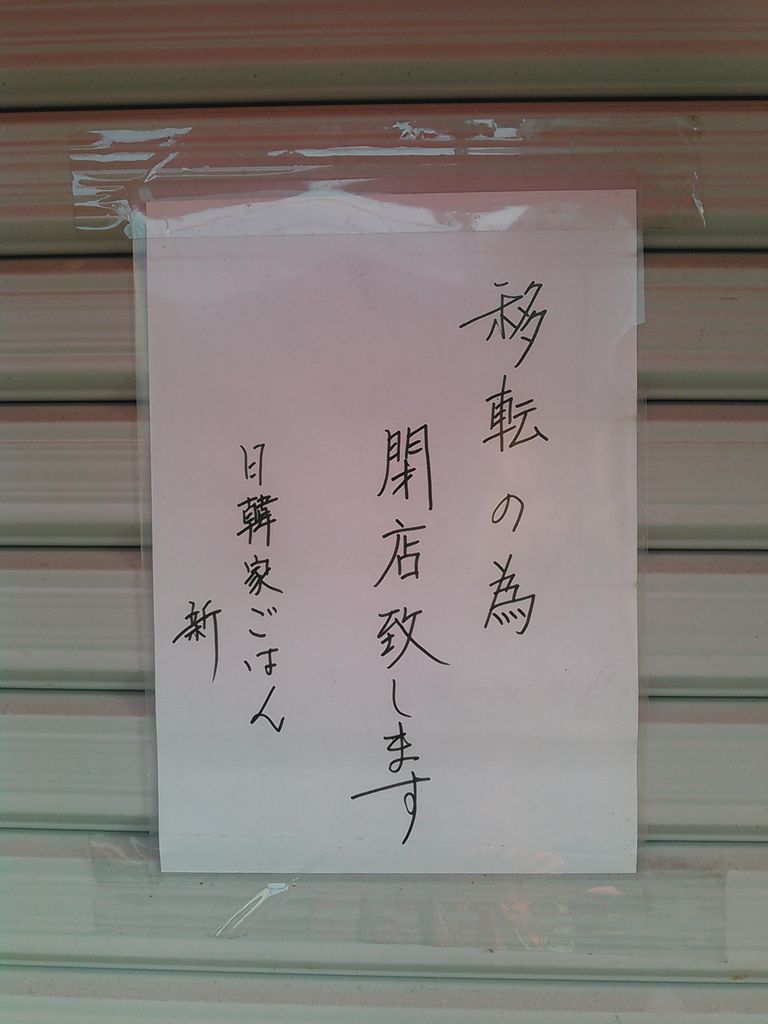 移転の為
閉店致します
日韓家ごはん
新